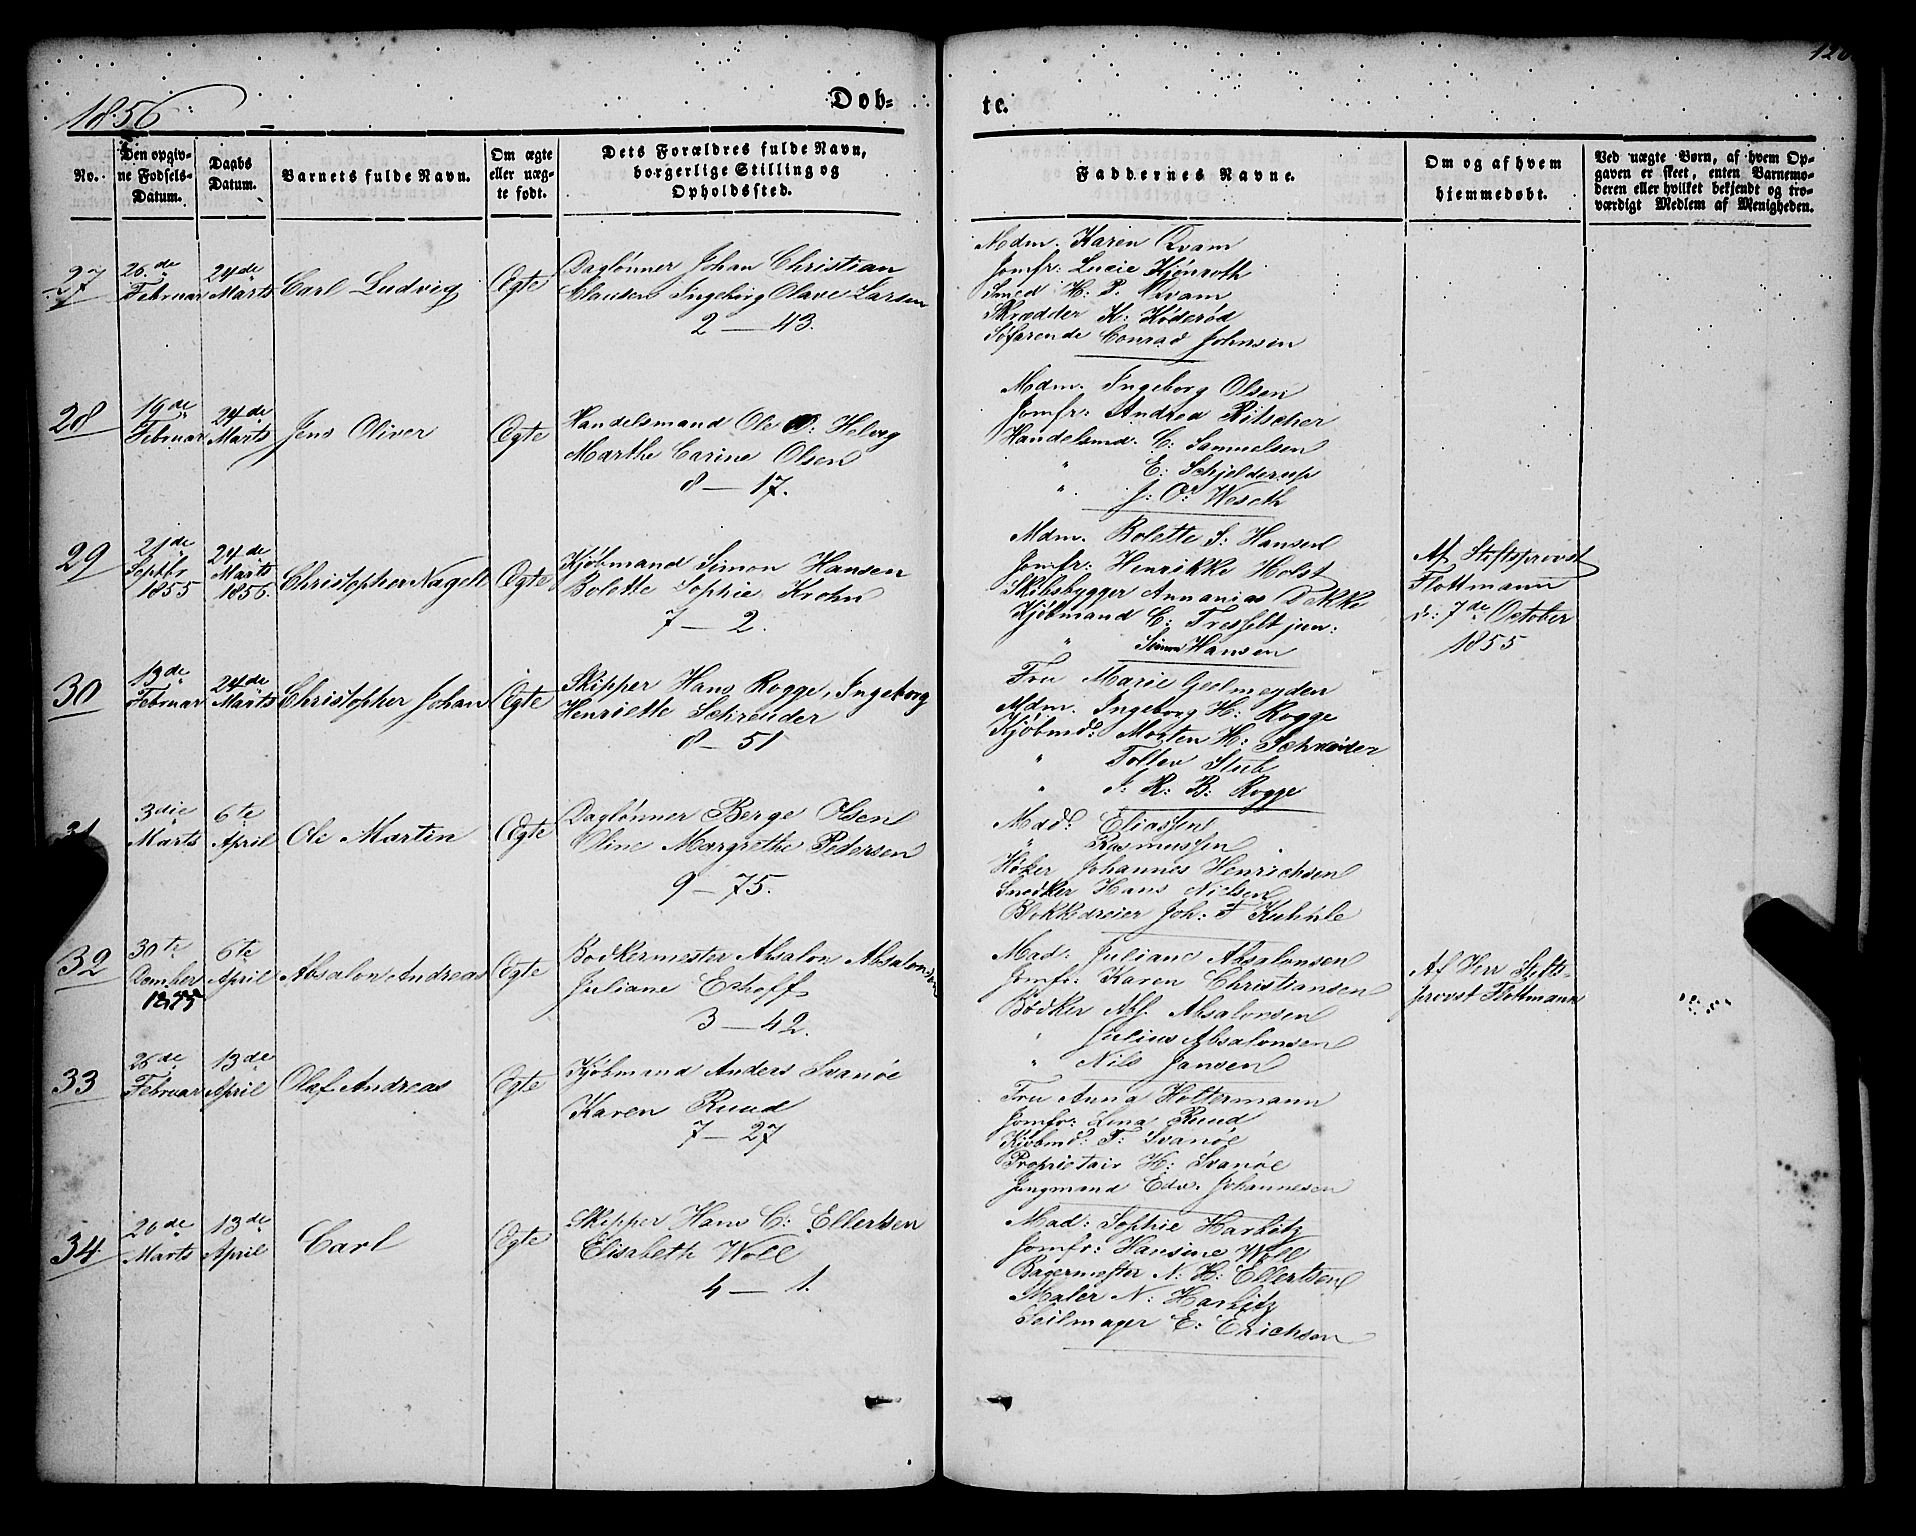 1856
Døb-
te.
No.
Den opgiv-
ne Fødsels-
Datum.
Daabs
Datum.
Barnets fulde Navn.
Om ægte
eller uæg-
te født.
Dets Forældres fulde Navn,
borgerlige Stilling og
Opholdssted.
Faddernes Navne.
Om og af hvem
hjemmedøbt.
Ved uægte Børn, af hvem Op-
gaven er skeet, enten Barnemo-
deren eller hvilket bekjendt og tro-
værdigt Medlem af Menigheden.
27
26.de
Februar
24de
Marts
Carl Ludvig
Ægte
Daglønner Johan Christian
Clausen Ingeborg Olave Larsen
2 — 43.
Mdm. Karen Qvam
Jomfr: Lucie Kjönroth
Smed H. P. Qvam
Skrædder K: Köderöd
Söfarende Conrad Johnsen
28
19de
Februar
24de
Marts
Jens Oliver
Ægte
Handelsmand Ole : Helvig
Marthe Carine Olsen
8 — 17.
Mdm. Ingeborg Olsen
Jomfr: Andrea Ritscher
Handelsmd. C: Samuelsen
" E: Schjelderup
" J: O: Weseth
29
21de
Septbr
1855
24de
Marts
1856.
Christopher Nagell
Ægte
Kjöbmand Simon Hansen
Bolette Sophie Krohn
7 — 2.
Mdm. Bolette S: Hansen
Jomfr: Henrikke Holst
Skibsbygger Annanias Dekke
Kjöbmand C: Tresselt jun:
" Simon Hansen
Af Stiftsprovst
Flottmann
d: 7de October
1855
30
13de
Februar
24de
Marts
Christopher Johan
Ægte
Skipper Hans Rogge, Ingeborg
Henriette Schreuder
8 — 51
Fru Marie Geelmeyden
Mdm. Ingeborg H: Rogge
Kjöbmd: Morten H: Schreuder
" Tollev Stub
" J: R: B: Rogge
31
3die
Marts
6te
April
Ole Martin
Ægte
Daglønner Berge Olsen
Oline Margrethe Pedersen
9 — 75.
Mad: Eliassen
" Rasmussen
Höker Johannes Henrichsen
Snedker Hans Nielsen
Blokkdreier Joh: F Kuhnle
32
30te
Dcmber
1855
6te
April
Absalon Andreas
Ægte
Bödkermester Absalon Absalonsen
Juliane Eshoff
3 — 42.
Mad: Juliane Absalonsen
Jomfr: Karen Christiansen
Bödker Abs. Absalonsen
" Julius Absalonsen
" Nils Jansen
Af Herr Stifts-
provst Flottmann
33
26de
Februar
13de
April
Olaf Andreas
Ægte
Kjöbmand Anders Svanöe
Karen Ruud
7 — 27
Fru Anna Holtermann
Jomfr: Lina Ruud
Kjöbmd: T: Svanöe
Proprietair H: Svanöe
Jungmand Edv. Johannesen
34
20de
Marts
13de
April
Carl
Ægte
Skipper Hans C: Ellertsen
Elisabeth Woll
4 — 1.
Mad: Sophie Harbitz
Jomfr: Hansine Woll
Bagermester N: H: Ellertsen
Maler N: Harbitz
Seilmager E: Erichsen